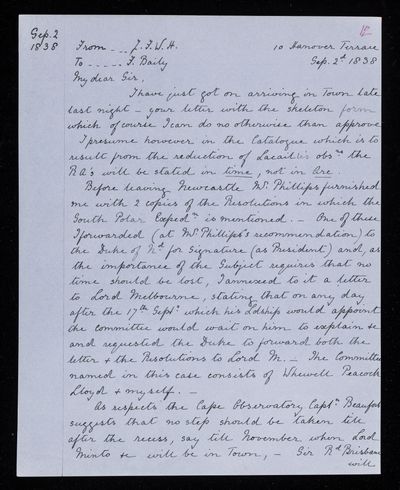 Sep. 2
1838
From - - - J. F. W. H.
10 Hanover Terrace
To - - - - - F. Baily
Sep. 2d 1838
My dear Sir,
I have just got on arriving in Town late
last night – your letter with the skeleton form
which of course I can do no otherwise than approve
I presume however in the Catalogue which is to
result from the reduction of Lacaille's obsns the
R.A's will be stated in time, not in Arc.
Before leaving Newcastle Mr. Phillips furnished
me with 2 copies of the Resolutions in which the
South Polar Expedn is mentioned. – One of these
I forwarded (at Mr Phillips's recommendation) to
the Duke of Nd for signature (as President) and, as
the importance of the Subject requires that no
time should be lost, I annexed to it a letter
to Lord Melbourne, stating that on any day
after the 17th Sept. which his Ldship would appoint
the Committee would wait on him to explain &c
and requested the Duke to forward both the
letter & the Resolutions to Lord M. – The Committee
named in this case consists of Whewell Peacock
Lloyd & myself. –
As respects the Cape Observatory Captn Beaufort
suggests that no step should be taken till
after the recess, say till November when Lord
Minto &c will be in Town, – Sir
Brisbane
will